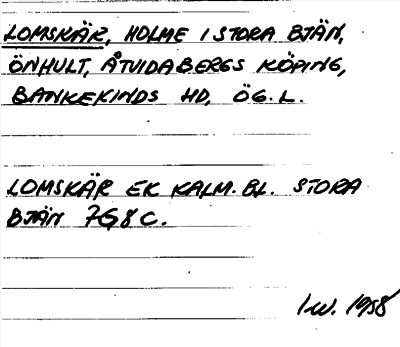 LOMSKÄR, HOLME I STORA BJÄN,
ÖNHULT, ÅTVIDABERGS KÖPING,
BANKEKINDS HD, ÖG.L.
LOMSKÄR EK KALM. BL. STORA
BJÄN 7G8C.
I.W. 1958